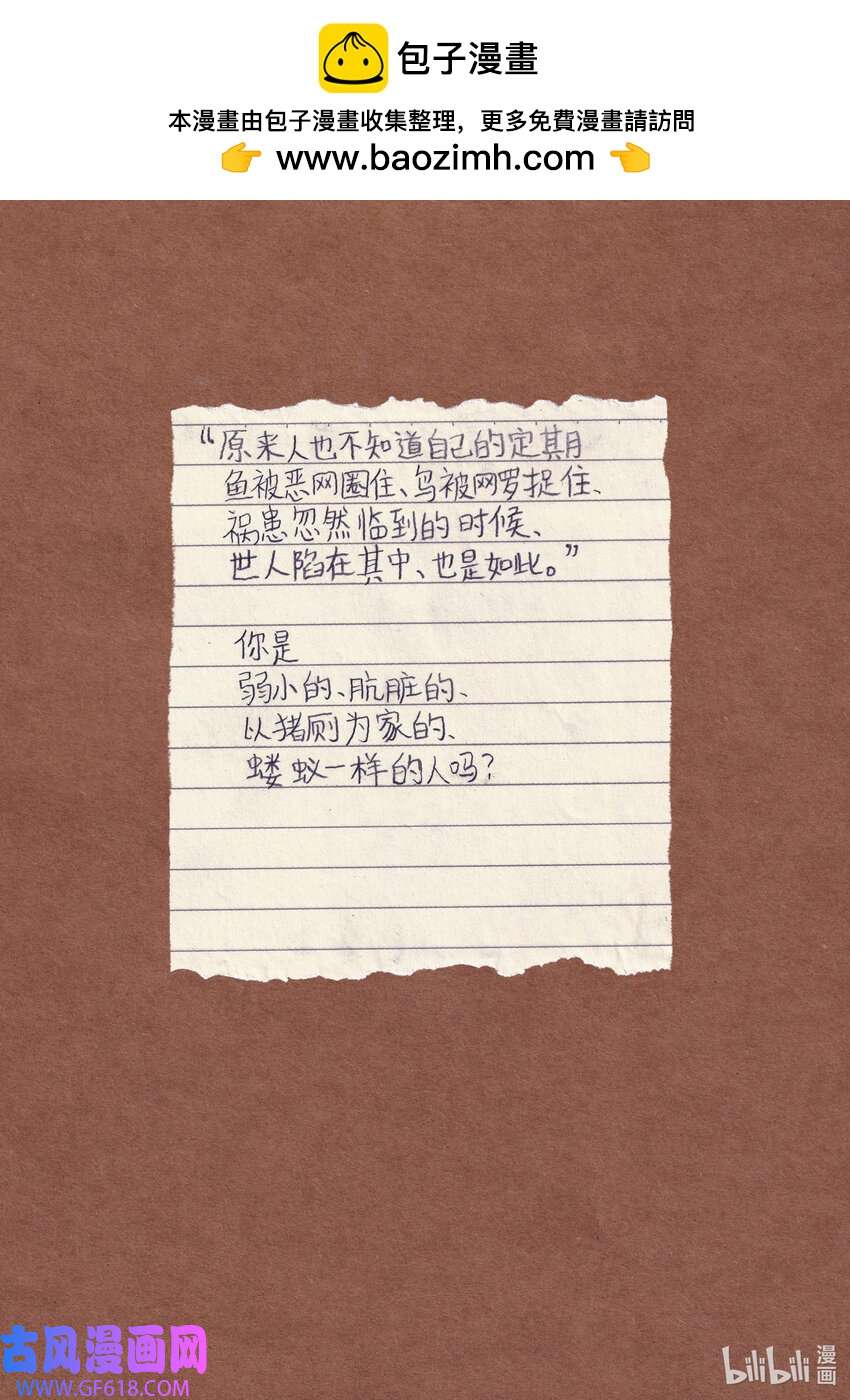 包子漫畫
本漫畫由包子漫畫收集整理，更多免費漫畫請訪問
👉 www.baozimh.com 👈
“原来人也不知道自己的定期
鱼被恶网圈住、鸟被网罗捉住、
祸患忽然临到的时候、
世人陷在其中、也是如此。”
你是
弱小的、肮脏的、
以猪厕为家的、
蝼蚁一样的人吗？
古风漫画网
WWW.GF618.COM
bilibili 漫画